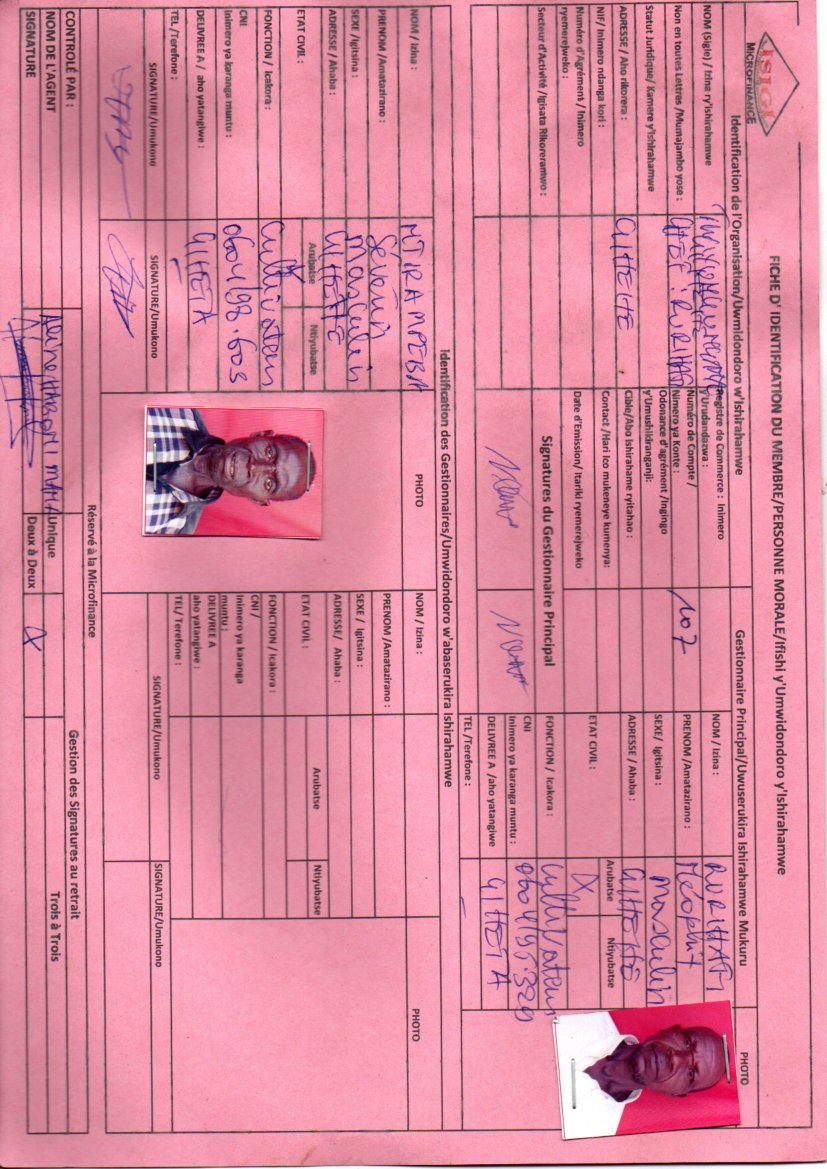 ISIGI
MICROFINANCE
FICHE D' IDENTIFICATION DU MEMBRE/PERSONNE MORALE/Ifishi y'Umwidondoro y'Ishirahamwe
Identification de l'Organisation/Uwmidondoro w'Ishirahamwe
Gestionnaire Principal/Uwuserukira Ishirahamwe Mukuru
PHOTO
NOM (Sigle) / Izina ry'ishirahamwe
Non en toutes Lettres /Munajambo yose :
Statut Juridique/ Kamere y'Ishirahamwe
ADRESSE / Aho rikorera :
GIHEHE
NIF/ Inimero ndanga kori :
Numéro d'Agrément / Inimero
ryemerejweko :
Secteur d'Activité /Igisata Rikoreramwo :
Registre de Commerce : Inimero
y'Urudandazwa :
Numéro de Compte /
Nimero ya Konte :
107
Odonance d'agrément /Ingingo
y'Umushikiranganji:
Cible/Abo Ishirahame ryitaho :
Contact /Hari ico mukeneye kumenya:
Date d'Emission/ Itariki ryemerejweko
Signatures du Gestionnaire Principal
NOM / Izina :
PRENOM /Amatazirano :
SEXE/ Igitsina :
Masculin
ADRESSE / Ahaba :
GIHEHE
ETAT CIVIL :
Arubatse
Ntiyubatse
X
FONCTION / Icakora :
Cultivateur
CNI
Inimero ya karanga muntu :
DELIVREE A /aho yatangiwe
GIHETA
TEL /Terefone :
–
Identification des Gestionnaires/Umwidondoro w'abaserukira Ishirahamwe
NOM / Izina :
NTIRAMPEBA
PHOTO
PRENOM /Amatazirano :
Séverin
SEXE /Igitsina :
Masculin
ADRESSE / Ahaba :
GIHEHE
ETAT CIVIL :
Arubatse
Ntiyubatse
X
FONCTION / Icakora :
Cultivateur
CNI
Inimero ya karanga muntu :
0604/98.603
DELIVREE A / aho yatangiwe :
GIHETA
TEL /Terefone :
–
SIGNATURE/Umukono
SIGNATURE/Umukono
NOM / Izina :
PHOTO
PRENOM /Amatazirano :
SEXE / Igitsina :
ADRESSE/ Ahaba :
ETAT CIVIL :
Arubatse
Ntiyubatse
FONCTION / Icakora :
CNI /
Inimero ya karanga
muntu :
DELIVREE A
aho yatangiwe :
TEL/ Terefone :
SIGNATURE/Umukono
SIGNATURE/Umukono
Réservé à la Microfinance
CONTROLÉ PAR :
Gestion des Signatures au retrait
NOM DE L'AGENT
Unique
Trois à Trois
SIGNATURE
Deux à Deux
X